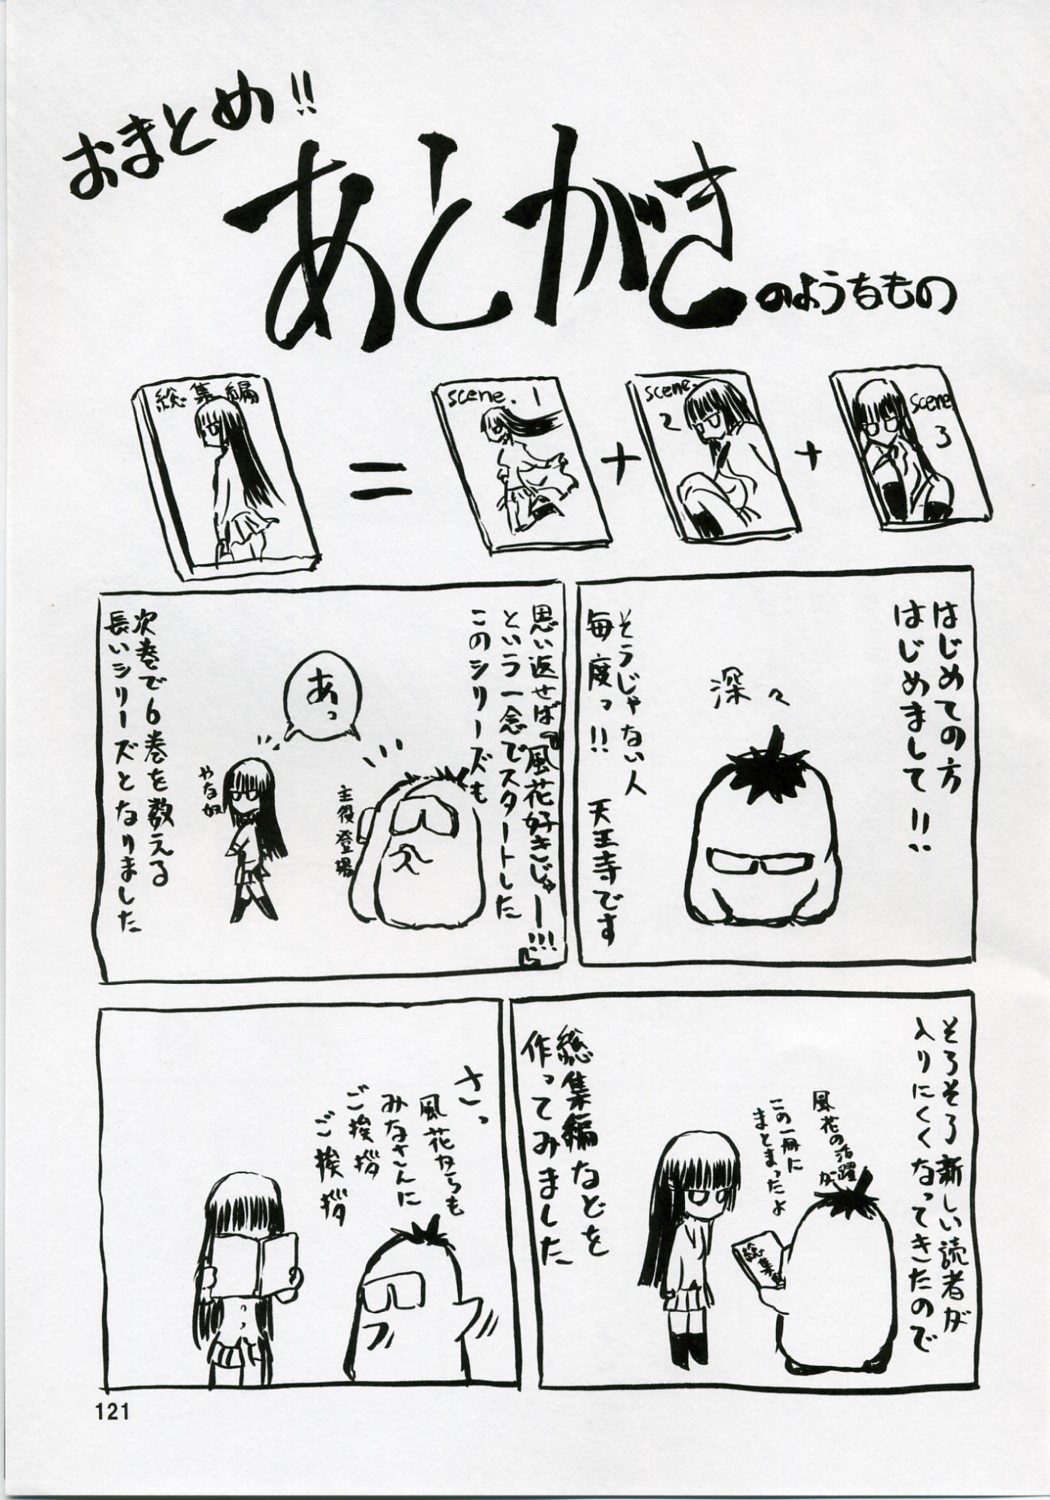 おまとめ!!
あとがき
のようなもの
総集編
=
scene. 1
+
scene. 2
+
scene. 3
はじめての方
はじめまして!!
深々
そうじゃない人
毎度っ!! 天王寺です
思い返せば『風花好きじゃー!!!』
という一念でスタートした
このシリーズも
あっ
主役登場
次巻で6巻を数える
長いシリーズとなりました
そろそろ新しい読者が
入りにくくなってきたので
風花の活躍が
この一冊に
まとまったよ
総集編
総集編などを
作ってみました
さっ
風花からも
みなさんに
ご挨拶
ご挨拶
121